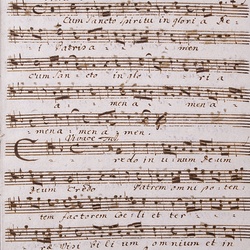 Cum Sancto Spiritu in gloria De
i Patris a men
Cum San cto in glo ri a
a men a men a
men a men a men.
Vivace
Credo in u num Deum
Deum Credo Patrem omni po ten
tem factorem Coe li et ter
omnium et in